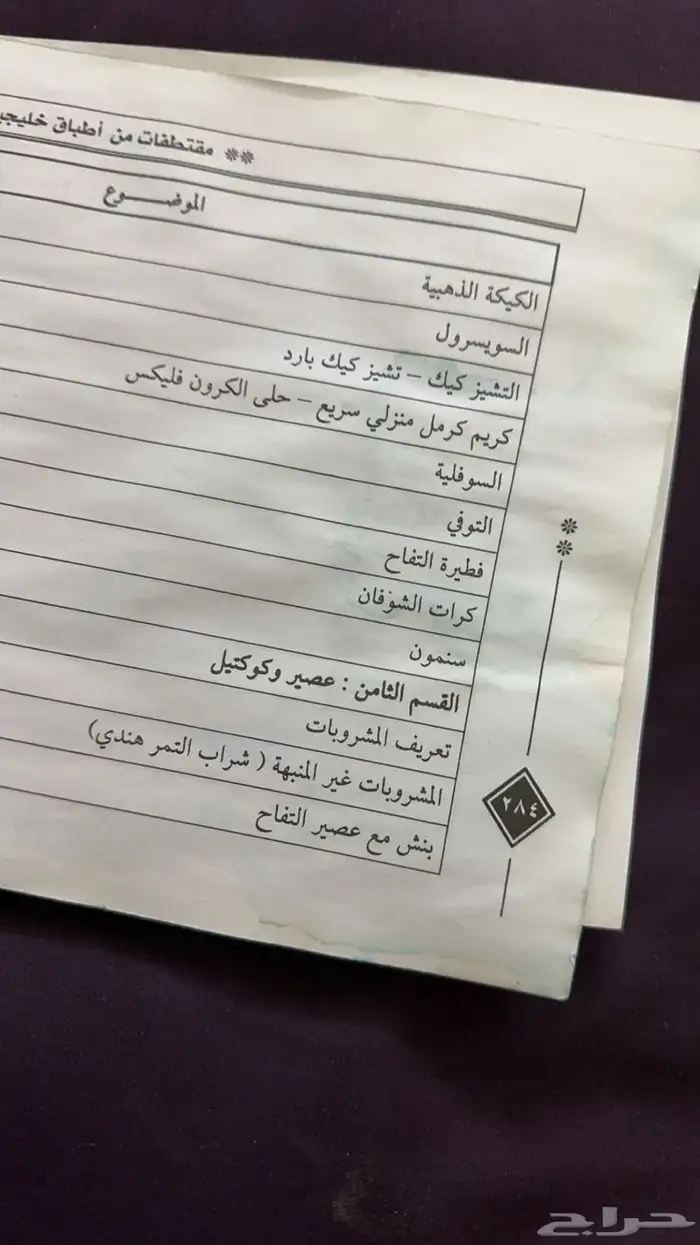 ** مقتطفات من أطباق خليجية
الموضـــــوع
الكيكة الذهبية
السويسرول
التشيز كيك – تشيز كيك بارد
كريم كرمل منزلي سريع – حلى الكرون فليكس
السوفلية
التوفي
فطيرة التفاح
كرات الشوفان
سنمون
القسم الثامن : عصير وكوكتيل
تعريف المشروبات
المشروبات غير المنبهة ( شراب التمر هندي)
بنش مع عصير التفاح
**
٢٨٤
حراج